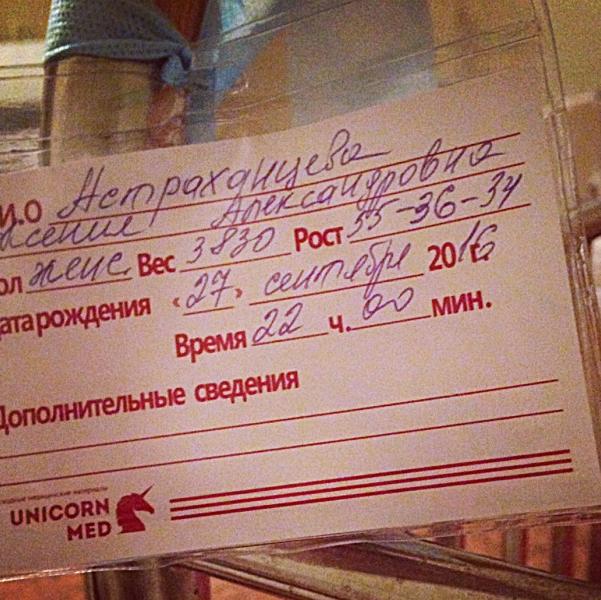 И.О Астраханцева
Ксения Александровна
ол женс. Вес 3830 Рост 55-36-34
ата рождения «27» сентября 2016 г.
Время 22 ч. 00 мин.
Дополнительные сведения
UNICORN
MED